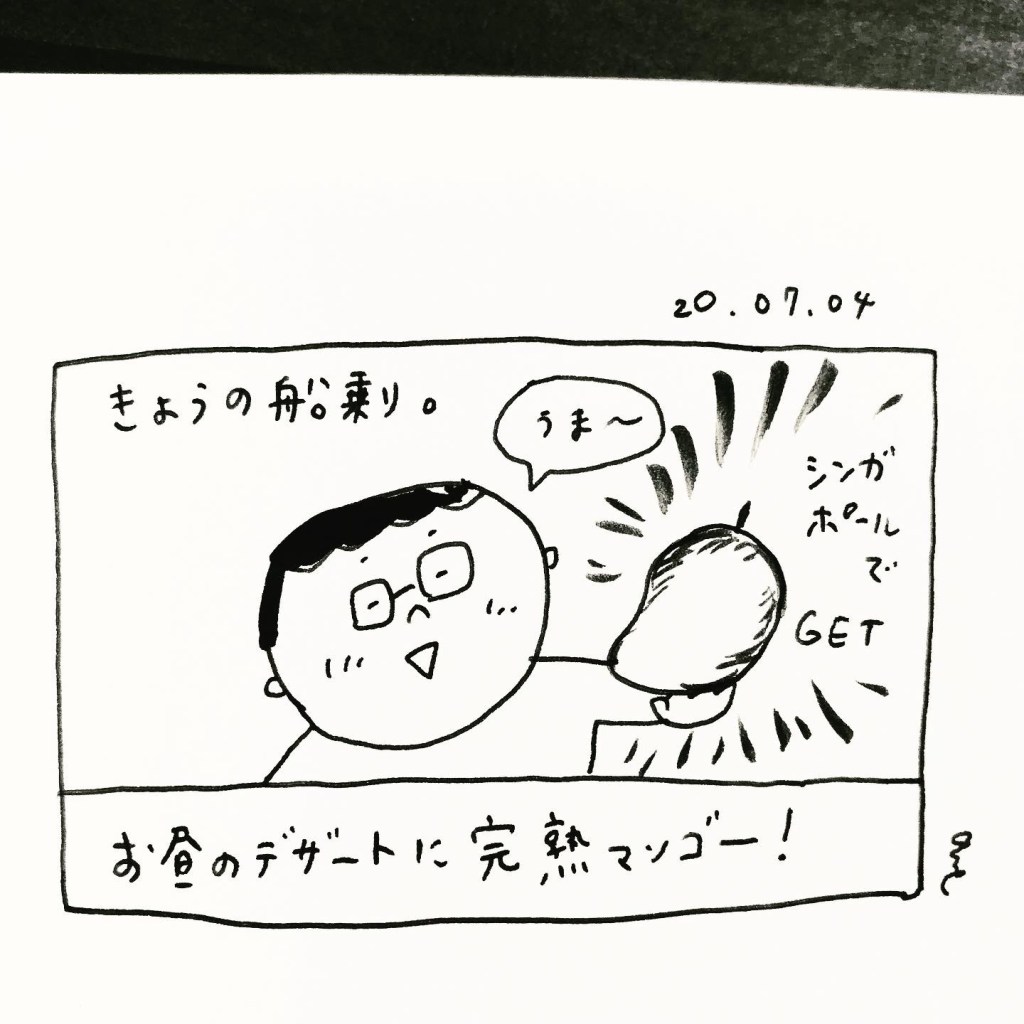 20.07.04
きょうの船乗り。
うま〜
シンガ
ポール
で
GET
お昼のデザートに完熟マンゴー!